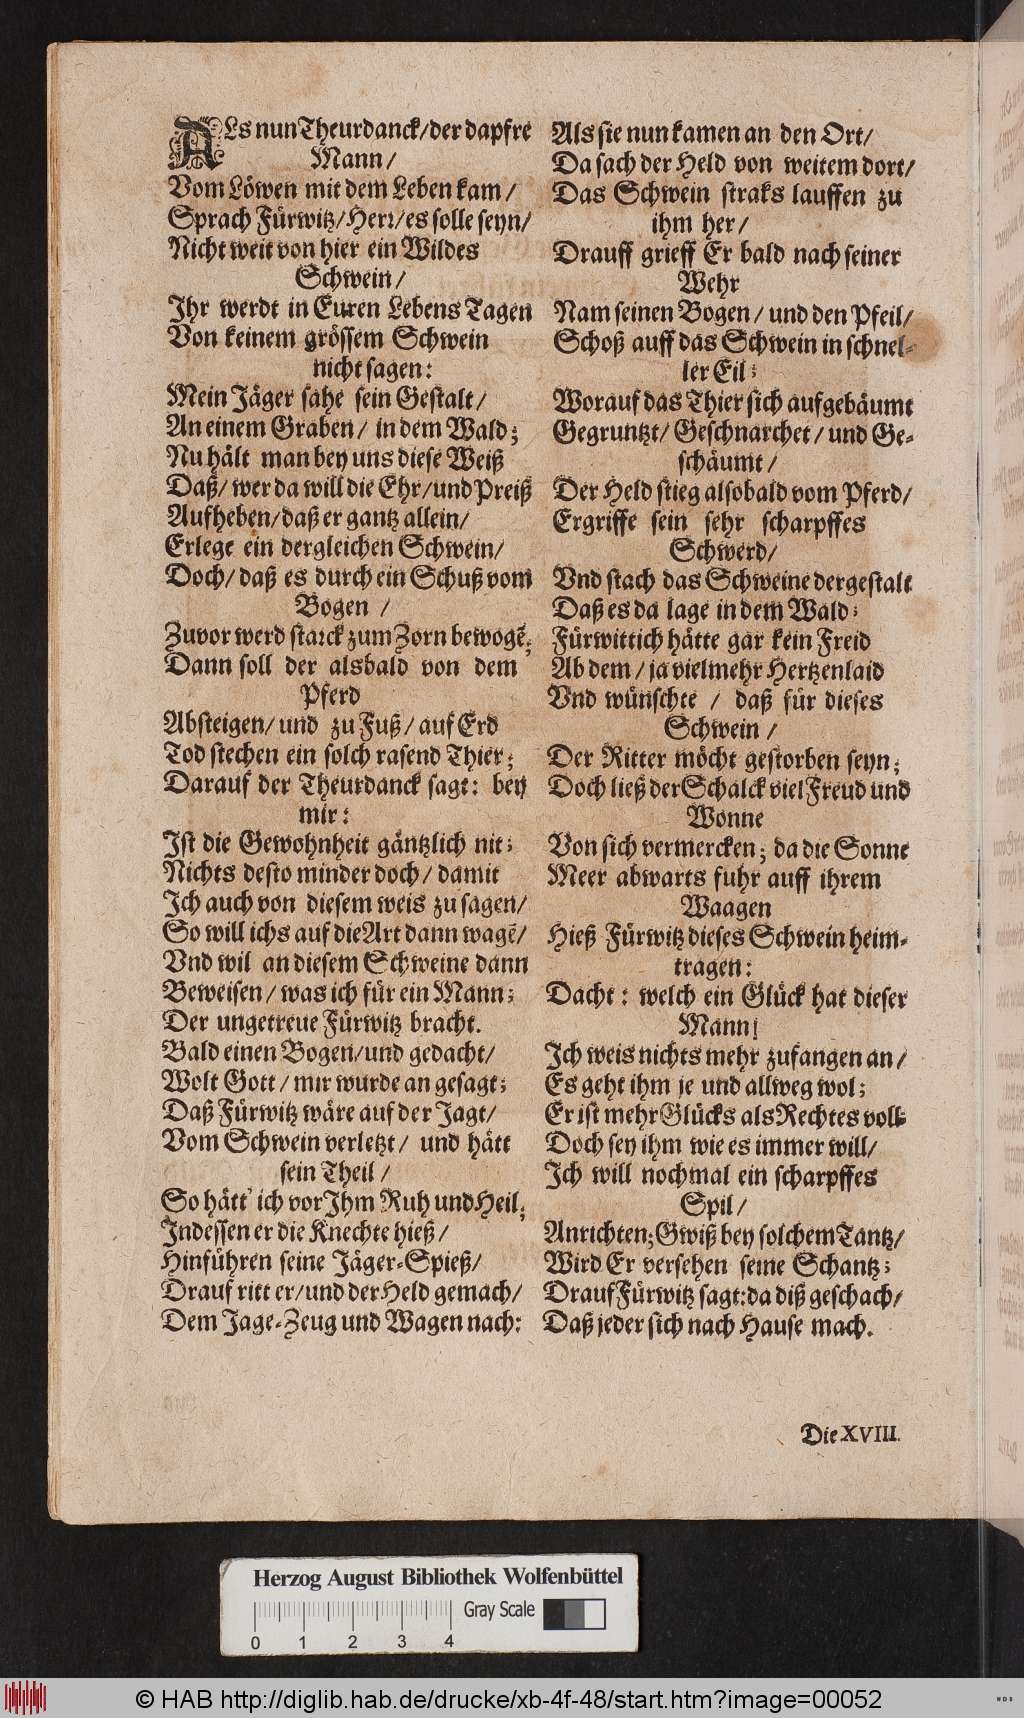 ALs nun Theurdanck/der dapfre
Mann/
Vom Löwen mit dem Leben kam/
Sprach Fürwitz/Herr/es solle seyn/
Nicht weit von hier ein Wildes
Schwein/
Ihr werdt in Euren Lebens Tagen
Von keinem grössem Schwein
nicht sagen:
Mein Jäger sahe sein Gestalt/
An einem Graben/ in dem Wald;
Nu hält man bey uns diese Weiß
Daß/ wer da will die Ehr/und Preiß
Aufheben/daß er gantz allein/
Erlege ein dergleichen Schwein/
Doch/ daß es durch ein Schuß vom
Bogen /
Zuvor werd starck zum Zorn bewogẽ;
Dann soll der alsbald von dem
Pferd
Absteigen/ und zu Fuß/ auf Erd
Tod stechen ein solch rasend Thier;
Darauf der Theurdanck sagt: bey
mir:
Ist die Gewohnheit gäntzlich nit;
Nichts desto minder doch/ damit
Ich auch von diesem weis zu sagen/
So will ichs auf die Art dann wagẽ/
Vnd wil an diesem Schweine dann
Beweisen/ was ich für ein Mann;
Der ungetreue Fürwitz bracht.
Bald einen Bogen/und gedacht/
Wolt Gott/ mir wurde an gesagt;
Daß Fürwitz wäre auf der Jagt/
Vom Schwein verletzt/ und hätt
sein Theil/
So hätt' ich vor Ihm Ruh und Heil;
Indessen er die Knechte hieß/
Hinführen seine Jäger-Spieß/
Drauf ritt er/und der Held gemach/
Dem Jage-Zeug und Wagen nach:
Als sie nun kamen an den Ort/
Da sach der Held von weitem dort/
Das Schwein straks lauffen zu
ihm her/
Drauff grieff Er bald nach seiner
Wehr
Nam seinen Bogen/ und den Pfeil/
Schoß auff das Schwein in schnel-
ler Eil;
Worauf das Thier sich aufgebäumt
Gegruntzt/ Geschnarchet/ und Ge-
schäumt/
Der Held stieg alsobald vom Pferd/
Ergriffe sein sehr scharpffes
Schwerd/
Vnd stach das Schweine dergestalt
Daß es da lage in dem Wald;
Fürwittich hätte gar kein Freid
Ab dem/ ja vielmehr Hertzenlaid
Vnd wünschte / daß für dieses
Schwein/
Der Ritter möcht gestorben seyn;
Doch ließ der Schalck viel Freud und
Wonne
Von sich vermercken; da die Sonne
Meer abwarts fuhr auff ihrem
Waagen
Hieß Fürwitz dieses Schwein heim-
tragen:
Dacht: welch ein Glück hat dieser
Mann!
Ich weis nichts mehr zufangen an/
Es geht ihm je und allweg wol;
Er ist mehr Glücks als Rechtes voll:
Doch sey ihm wie es immer will/
Ich will nochmal ein scharpffes
Spil/
Anrichten; Gwiß bey solchem Tantz/
Wird Er versehen seine Schantz;
Drauf Fürwitz sagt: da diß geschach/
Daß jeder sich nach Hause mach.
Die XVIII.
Herzog August Bibliothek Wolfenbüttel
Gray Scale
0 1 2 3 4
© HAB http://diglib.hab.de/drucke/xb-4f-48/start.htm?image=00052